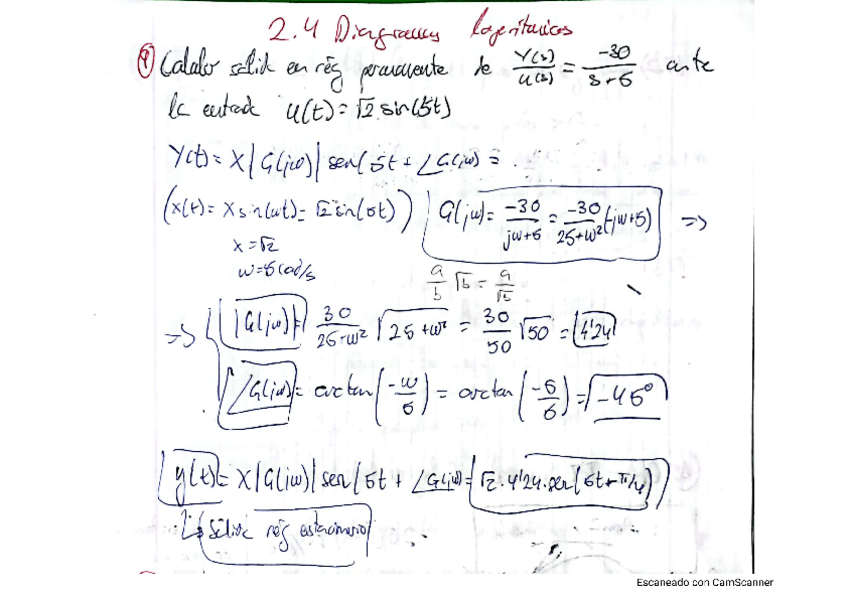 2.4 Diagramas logarítmicos
① Calcular salida en rég permanente de Y(s)/U(s) = -30/s+5 ante
la entrada u(t) = √2 sin(5t)
Y(t) = X|G(jω)| sen(5t + ∠G(jω) =
(x(t) = X sin(ωt) = √2 sin(5t)) G(jω) = -30/jω+5 = -30/25+ω² (-jω+5) =>
X = √2
ω = 5 rad/s
a/b √b = a/√b
=> |G(jω)| = 30/25+ω² √25+ω² = 30/50 √50 = 4'24
∠G(jω) = arctan(-ω/5) = arctan(-5/5) = -45°
y(t) = X|G(jω)| sen(5t + ∠G(jω) = √2·4'24·sen(5t+π/4)
↳ Salida rég estacionario
Escaneado con CamScanner